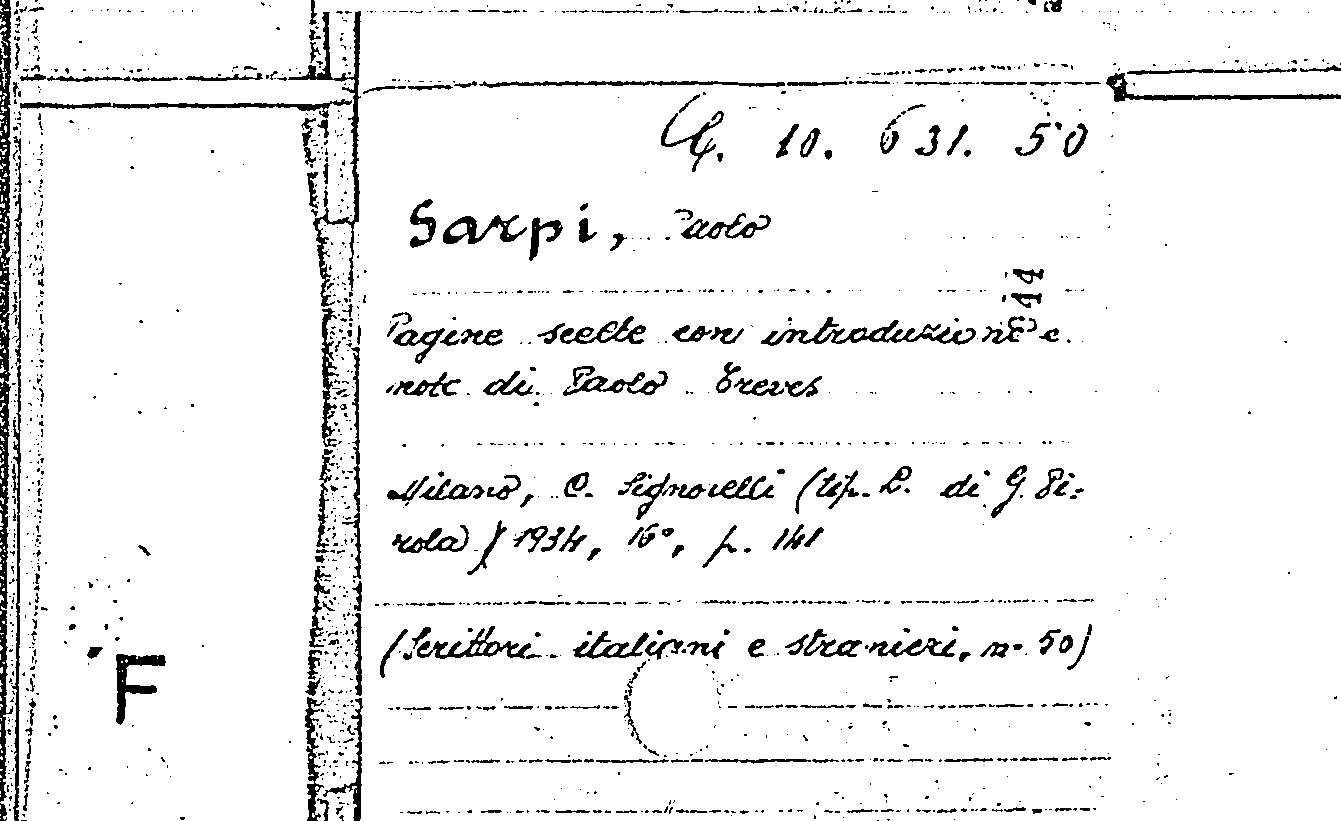 C. 10. 631. 50
Sarpi, Paolo
Pagine scelte con introduzione e
note di Paolo Treves
Milano, C. Signorelli (tip. L. di G. Pi-
rola) 1934, 16°, p. 141
(Scrittori italiani e stranieri, n. 50)
F